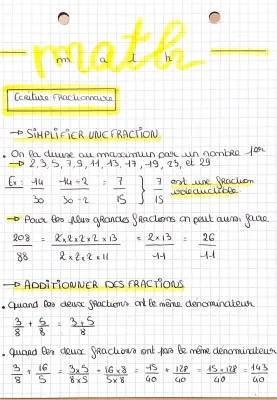 math
m a t h
Ecriture Fractionnaire
→ SIMPLIFIER UNE FRACTION
• On la divise au maximum par un nombre 1er
→ 2, 3, 5, 7, 9, 11, 13, 17, 19, 23, et 29
Ex: 14/30 14÷2/30÷2 = 7/15 } 7/15 est une fraction irréductible
→ Pour les plus grandes fractions on peut aussi faire
208/88 = 2×2×2×2×13/2×2×2×11 = 2×13/11 = 26/11
→ ADDITIONNER DES FRACTIONS
• Quand les deux fractions ont le même dénominateur
3/8 + 5/8 = 3+5/8
• Quand les deux fractions ont pas le même dénominateur
3/8 + 16/5 = 3×5/8×5 + 16×8/5×8 = 15/40 + 128/40 = 15+128/40 = 143/40